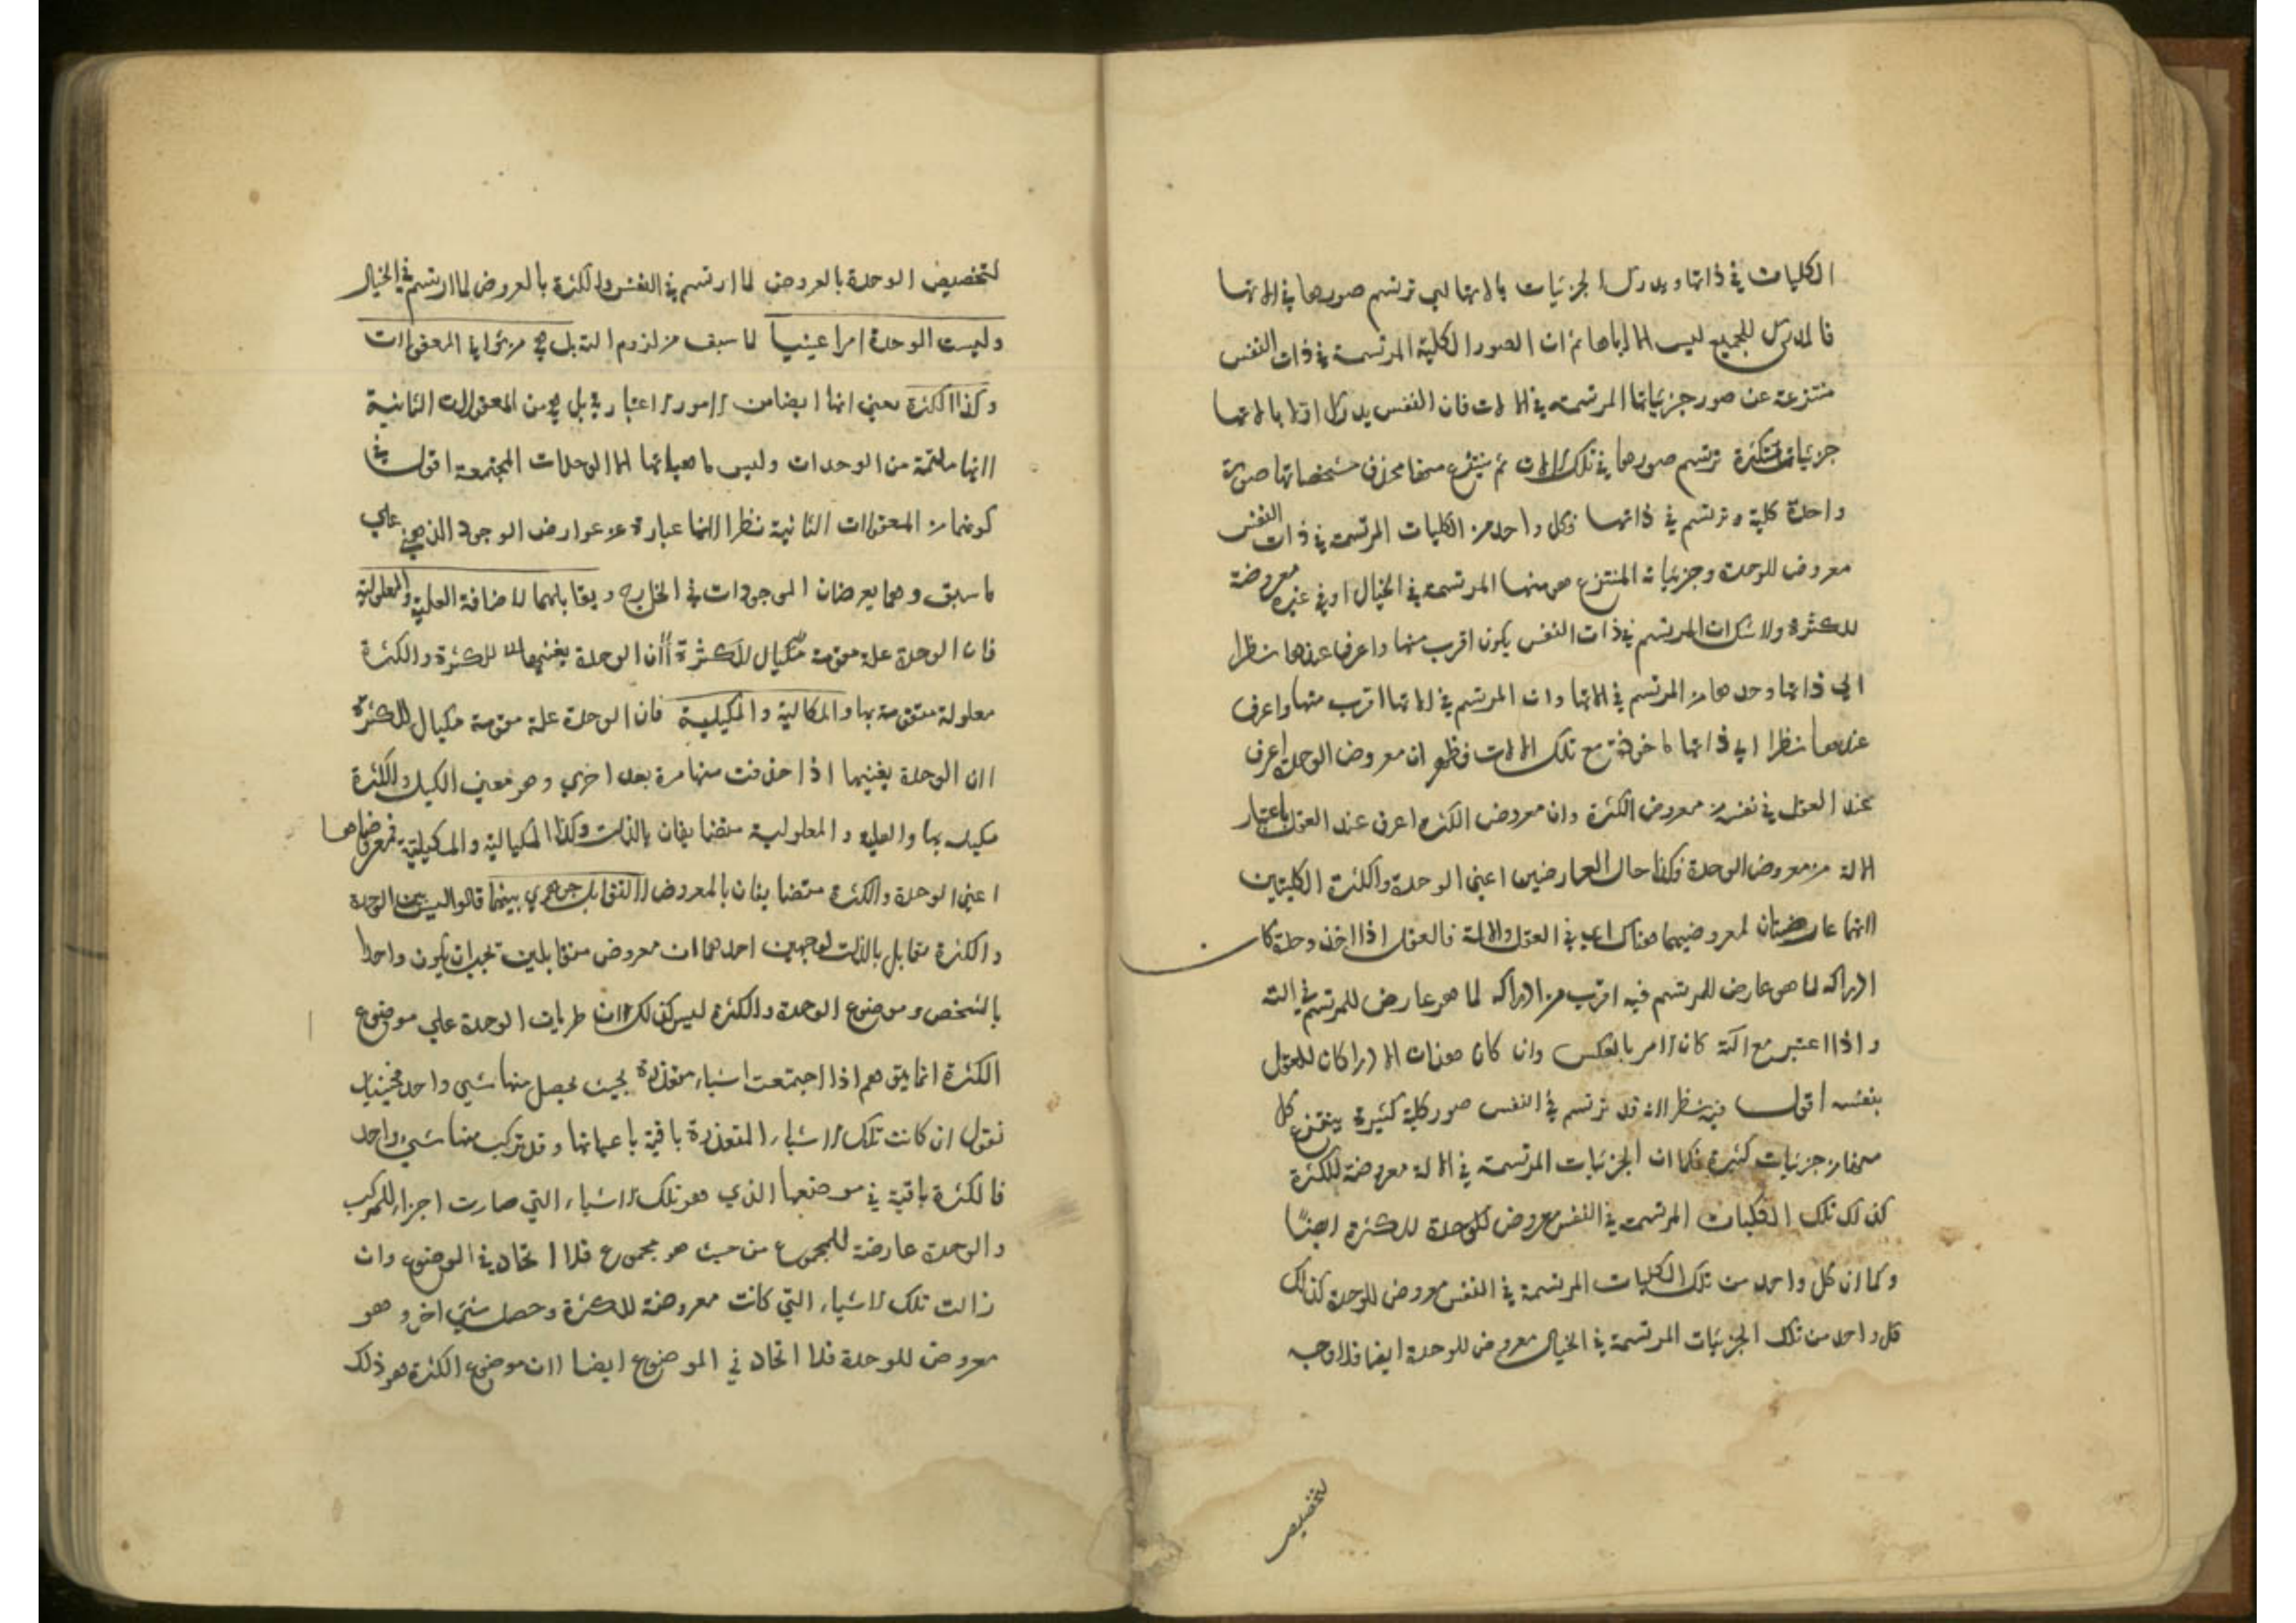 الكليات في ذاتها ويدرك الجزئيات بالاتها اي ترتسم صورها في الاتها
فالمدرك للجميع ليس الا اياها ثم ان الصور الكلية المرتسمة في ذات النفس
منتزعة عن صور جزئياتها المرتسمة في الالات فان النفس يدرك اولا بالاتها
جزئيات متكثرة ترتسم صورها في تلك الالات ثم ينتزع منها بحذف مشخصاتها صورة
واحدة كلية وترتسم في ذاتها فكل واحد من الكليات المرتسمة في ذات النفس
معروض للوحدة وجزئياته المنتزع هو منها المرتسمة في الخيال او في غيره معروضة
للكثرة ولا شك ان المرتسم في ذات النفس يكون اقرب منها واعرف عندها نظرا
الي ذاتها وحدها من المرتسم في الاتها وان المرتسم في الاتها اقرب منها واعرف
عندها نظرا الي ذاتها ماخوذة مع تلك الالات فظهر ان معروض الوحدة اعرف
عند العقل في نفسه من معروض الكثرة وان معروض الكثرة اعرف عند العقل باعتبار
الالة من معروض الوحدة فكذا حال العارضين اعني الوحدة والكثرة الكليتين
لانهما عارضتان لمعروضيهما هناك اي في العقل والالة فالعقل اذا اخذ وحده كان
ادراكه لما هو عارض للمرتسم فيه اقرب من ادراكه لما هو عارض للمرتسم في الته
واذا اعتبر مع الته كان الامر بالعكس وان كان هذان الادراكان للعقل
بنفسه اقول فيه نظر لانه قد ترتسم في النفس صور كلية كثيرة ينتزع كل
منها من جزئيات كثيرة فكما ان الجزئيات المرتسمة في الالة معروضة للكثرة
كذلك تلك الكليات المرتسمة في النفس معروض للوحدة للكثرة ايضًا
وكما ان كل واحد من تلك الكليات المرتسمة في النفس معروض للوحدة كذلك
كل واحد من تلك الجزئيات المرتسمة في الخيال معروض للوحدة ايضا فلا وجه
لتخصيص
لتخصيص الوحدة بالعروض لما ارتسم في النفس والكثرة بالعروض لما ارتسم في الخيال
وليست الوحدة امرا عينيا لما سبق من لزوم التسل بل هي من ثواني المعقولات
وكذا الكثرة يعني انها ايضا من الامور الاعتبارية بل هي من المعقولات الثانية
لانها ملتئمة من الوحدات وليس ماهياتها الا الوحدات المجتمعة اقول في
كونهما من المعقولات الثانية نظر لانها عبارة عن عوارض الوجود الذهني علي
ما سبق وهما يعرضان الموجودات في الخارج ويقابلهما لاضافة العلية والمعلولية
فان الوحدة علة مقومة مكيال للكثرة لان الوحدة يغنيها للكثرة والكثرة
معلولة متقومة بها والمكالية والمكيلية فان الوحدة علة مقومة مكيال للكثرة
لان الوحدة يغنيها اذا حذفت منها مرة بعد اخري وهو معني الكيل وللكثرة
مكيل بها والعلية والمعلولية متضايفان بالذات وكذا المكيالية والمكيلية فمعروضاهما
اعني الوحدة والكثرة متضايفان بالمعروض لا لتقابل جوهري بينهما قالوا ليس بين الوحدة
والكثرة تقابل بالذات لوجهين احدهما ان معروض متقابلين يجب ان يكون واحدا
بالشخص وموضوع الوحدة والكثرة ليس كذلك لان طريان الوحدة علي موضوع
الكثرة انما يتوهم اذا اجتمعت اشياء متعددة بحيث يحصل منها شيي واحد فحينئذ
نقول ان كانت تلك الاشياء المتعددة باقية باعيانها وقد تركب منها شيي واحد
فالكثرة باقية في موضعها الذي هو تلك الاشياء التي صارت اجزاء للمركب
والوحدة عارضة للمجموع من حيث هو مجموع فلا اتحاد في الموضوع وان
زالت تلك الاشياء التي كانت معروضة للكثرة وحصل شيي اخر وهو
معروض للوحدة فلا اتحاد في الموضوع ايضا لان موضوع الكثرة هو ذلك